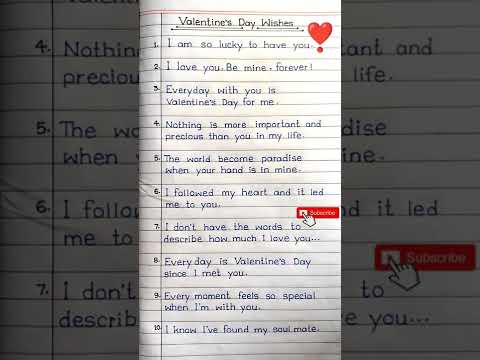 4. Nothing
precious
5. The wo
when you
6. I follo
me to y
7. I don't
describe
Valentine's Day Wishes
1. I am so lucky to have you.
2. I love you. Be mine forever!
3. Everyday with you is
Valentine's Day for me.
4. Nothing is more important and
precious than you in my life.
5. The world become paradise
when your hand is in mine.
6. I followed my heart and it led
me to you.
Subscribe
7. I don't have the words to
describe how much I love you...
8. Every day is Valentine's Day
since I met you.
9. Every moment feels so special
when I'm with you.
10. I know I've found my soul mate.
tant and
life.
dise
mine.
it led
Subscribe
to
ve you...